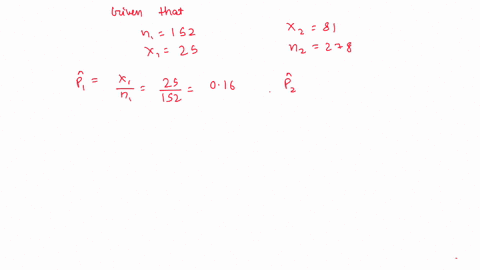 Given that
n₁ = 152
x₁ = 25
x₂ = 81
n₂ = 278
p̂₁ = x₁/n₁ = 25/152 = 0.16
p̂₂